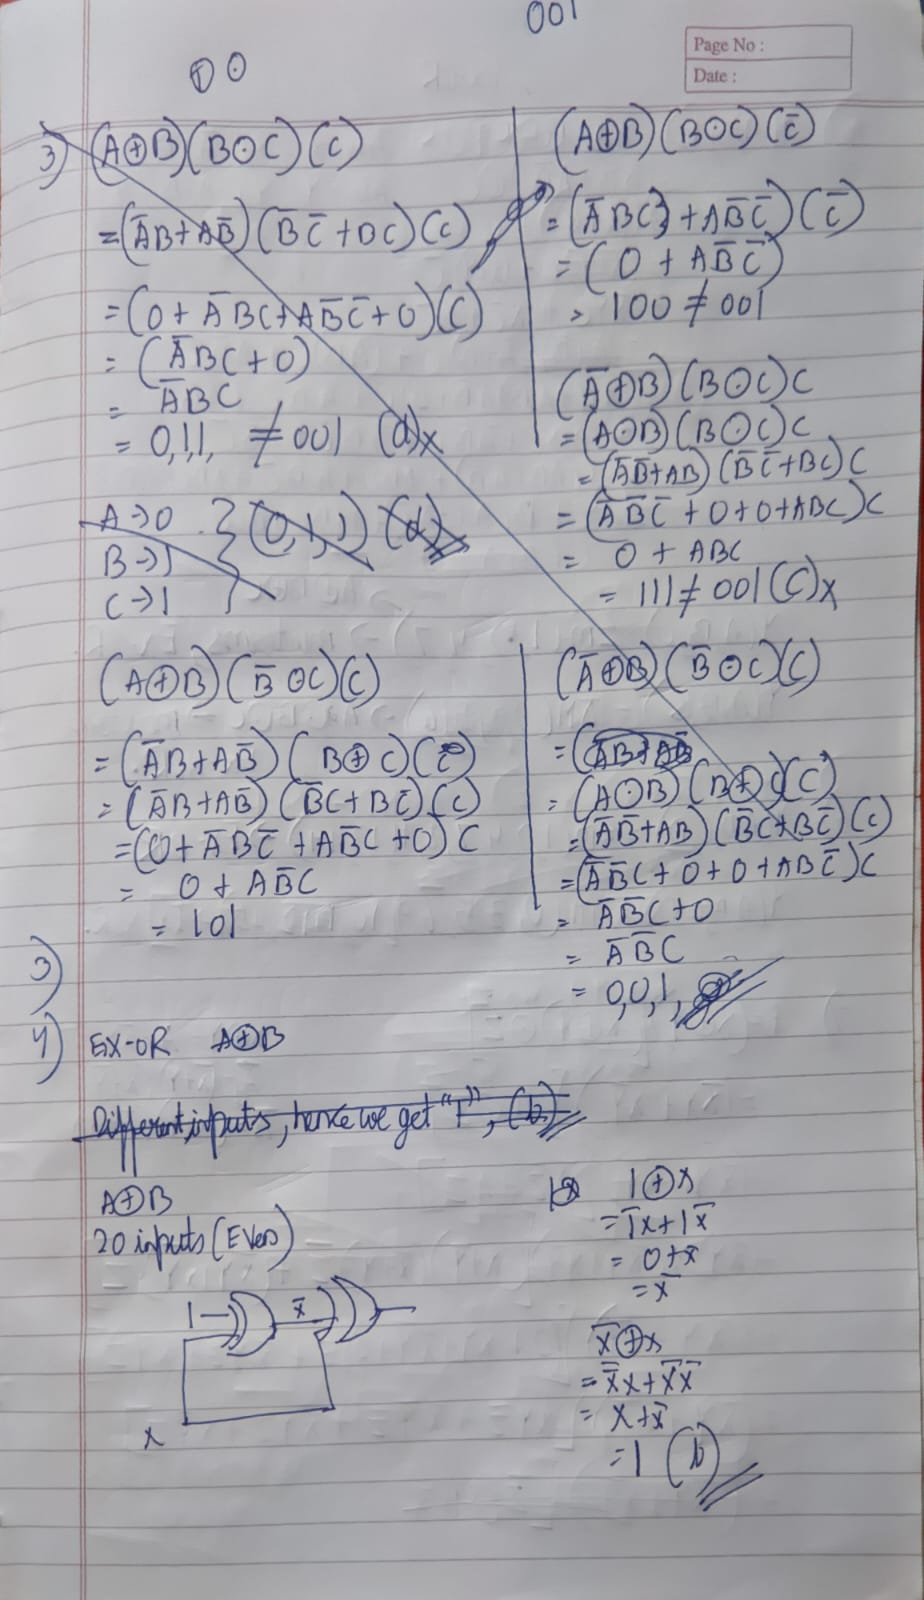 001
Page No :
Date :
00
3) (A⊕B)(B⊙C)(C)
=(A̅B+AB̅)(B̅C̅+BC)(C)
=(0+A̅BC+AB̅C̅+0)(C)
=(A̅BC+0)
= A̅BC
= 0,1,1, ≠001 (d)x
A→0
B→1
C→1
} (0,1,1) (d)
(A⊕B)(B⊙C)(C̅)
=(A̅BC+AB̅C̅)(C̅)
=(0+AB̅C̅)
= 100≠001
(A̅⊕B)(B⊙C)C
=(A⊙B)(B⊙C)C
=(A̅B̅+AB)(B̅C̅+BC)C
=(A̅B̅C̅+0+0+ABC)C
= 0+ABC
= 111≠001(C)x
(A⊕B)(B̅⊙C)(C)
=(A̅B+AB̅)(B⊕C)(C)
=(A̅B+AB̅)(B̅C+BC̅)(C)
=(0+A̅BC̅+AB̅C+0)C
= 0+AB̅C
= 101
(A̅⊕B)(B̅⊙C)(C)
=(A̅B+AB̅
=(A⊙B)(B⊕C)(C)
=(A̅B̅+AB)(B̅C+BC̅)(C)
=(A̅B̅C+0+0+ABC̅)C
= A̅B̅C+0
= A̅B̅C
= 0,0,1,
3)
4) EX-OR A⊕B
Different inputs, hence we get "1", (b)
A⊕B
20 inputs (Even)
1 x̅
x
1⊕x
=1̅x+1x̅
= 0+x̅
=x̅
x̅⊕x
=x̿x+x̅x̅
= x+x̅
=1 (b)